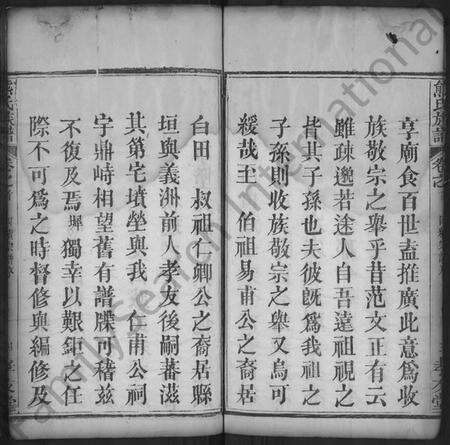 享廟食百世盍推廣此意為收
族敬宗之舉乎昔范文正有云
雖疎邈若途人自吾遠祖視之
皆其子孫也夫彼旣爲我祖之
子孫則收族敬宗之舉又烏可
緩哉王伯祖易甫公之裔居
白田 叔祖仁卿公之裔居縣
垣與義洲前人孝友後嗣蕃滋
其第宅墳塋與我 仁甫公祠
宇鼎峙相望舊有譜牒可稽茲
不復及焉墀獨幸以艱鉅之任
際不可爲之時督修與編修及
氏族譜
卷之
FamilySearch International